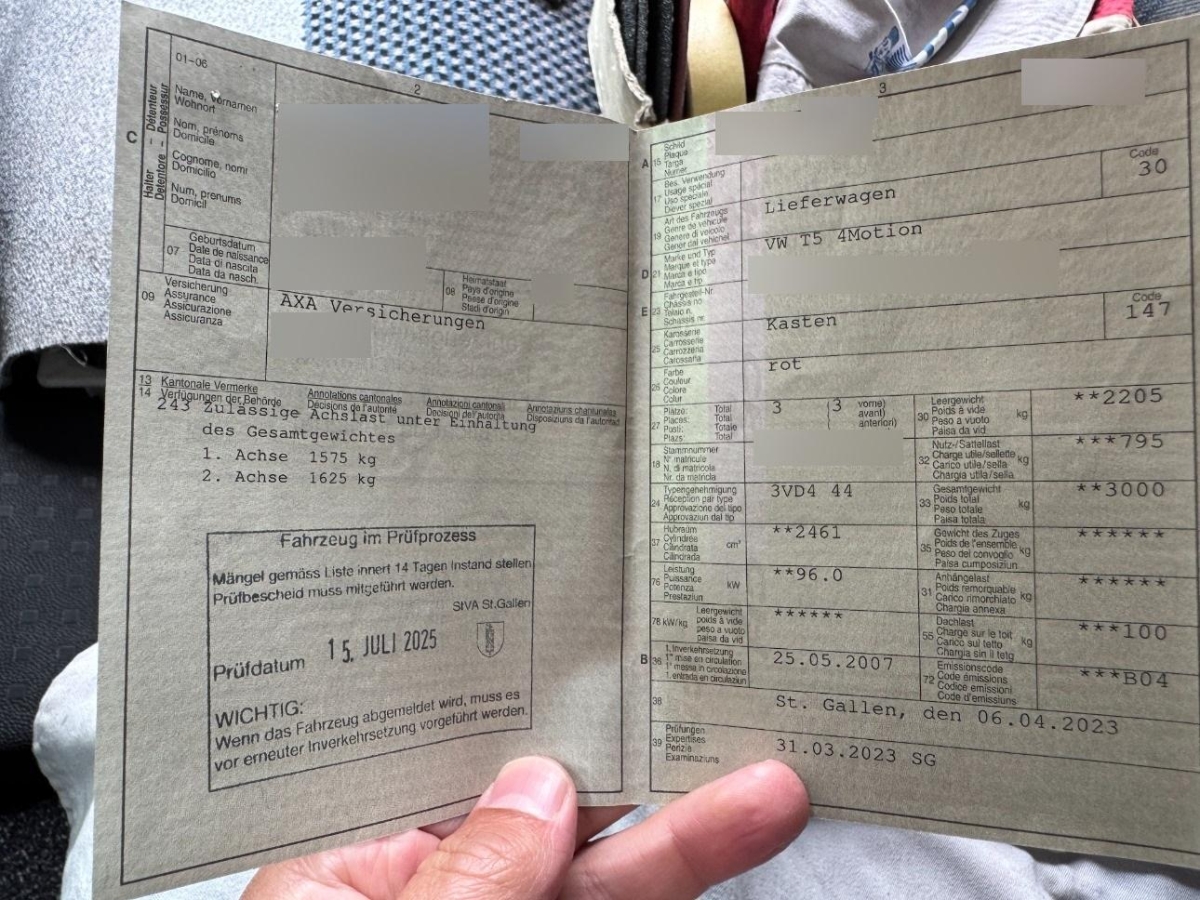 2
01-06
Halter – Détenteur
Detentore – Possessur
C
Name, Vornamen
Wohnort
Nom, prénoms
Domicile
Cognome, nomi
Domicilio
Num, prenums
Domicil
07
Geburtsdatum
Date de naissance
Data di nascita
Data da nasch.
08
Heimatstaat
Pays d'origine
Paese d'origine
Stadi d'origin
09
Versicherung
Assurance
Assicurazione
Assicuranza
AXA Versicherungen
13
14
Kantonale Vermerke
Verfügungen der Behörde
Annotations cantonales
Décisions de l'autorité
Annotazioni cantonali
Decisioni dell'autorità
Annotaziuns chantunalas
Disposiziuns da l'autoritad
243 Zulässige Achslast unter Einhaltung
des Gesamtgewichtes
1. Achse 1575 kg
2. Achse 1625 kg
Fahrzeug im Prüfprozess
Mängel gemäss Liste innert 14 Tagen Instand stellen
Prüfbescheid muss mitgeführt werden.
StVA St.Gallen
Prüfdatum 15. JULI 2025
WICHTIG:
Wenn das Fahrzeug abgemeldet wird, muss es
vor erneuter Inverkehrsetzung vorgeführt werden.
3
A 15
Schild
Plaque
Targa
Numer
17
Bes. Verwendung
Usage spécial
Uso speciale
Diever spezial
19
Art des Fahrzeugs
Genre de véhicule
Genere di veicolo
Gener dal vehichel
Lieferwagen
Code
30
D 21
Marke und Typ
Marque et type
Marca e tipo
Marca e tip
VW T5 4Motion
E 23
Fahrgestell-Nr.
Châssis no
Telaio n.
Schassis nr.
25
Karosserie
Carrosserie
Carrozzeria
Carossaria
Kasten
Code
147
26
Farbe
Couleur
Colore
Colur
rot
27
Plätze: Total
Places: Total
Posti: Totale
Plazs: Total
3 (3 vorne)
( avant)
anteriori)
30
Leergewicht
Poids à vide
Peso a vuoto
Paisa da vid
kg
**2205
18
Stammnummer
N° matricule
N. di matricola
Nr. da matricla
32
Nutz-/Sattellast
Charge utile/sellette
Carico utile/sella
Chargia utila/sella
kg
***795
24
Typengenehmigung
Réception par type
Approvazione del tipo
Approvaziun dal tip
3VD4 44
33
Gesamtgewicht
Poids total
Peso totale
Paisa totala
kg
**3000
37
Hubraum
Cylindrée
Cilindrata
Cilindrada
cm³
**2461
35
Gewicht des Zuges
Poids de l'ensemble
Peso del convoglio
Paisa cumposiziun
kg
******
76
Leistung
Puissance
Potenza
Prestaziun
kW
**96.0
31
Anhängelast
Poids remorquable
Carico rimorchiato
Chargia annexa
kg
******
78 kW/kg
Leergewicht
poids à vide
peso a vuoto
paisa da vid
******
55
Dachlast
Charge sur le toit
Carico sul tetto
Chargia sin il tetg
kg
***100
B 36
1. Inverkehrsetzung
1re mise en circulation
1a messa in circolazione
1. entrada en circulaziun
25.05.2007
72
Emissionscode
Code émissions
Codice emissioni
Code d'emissiuns
***B04
38
St. Gallen, den 06.04.2023
39
Prüfungen
Expertises
Perizie
Examinaziuns
31.03.2023 SG